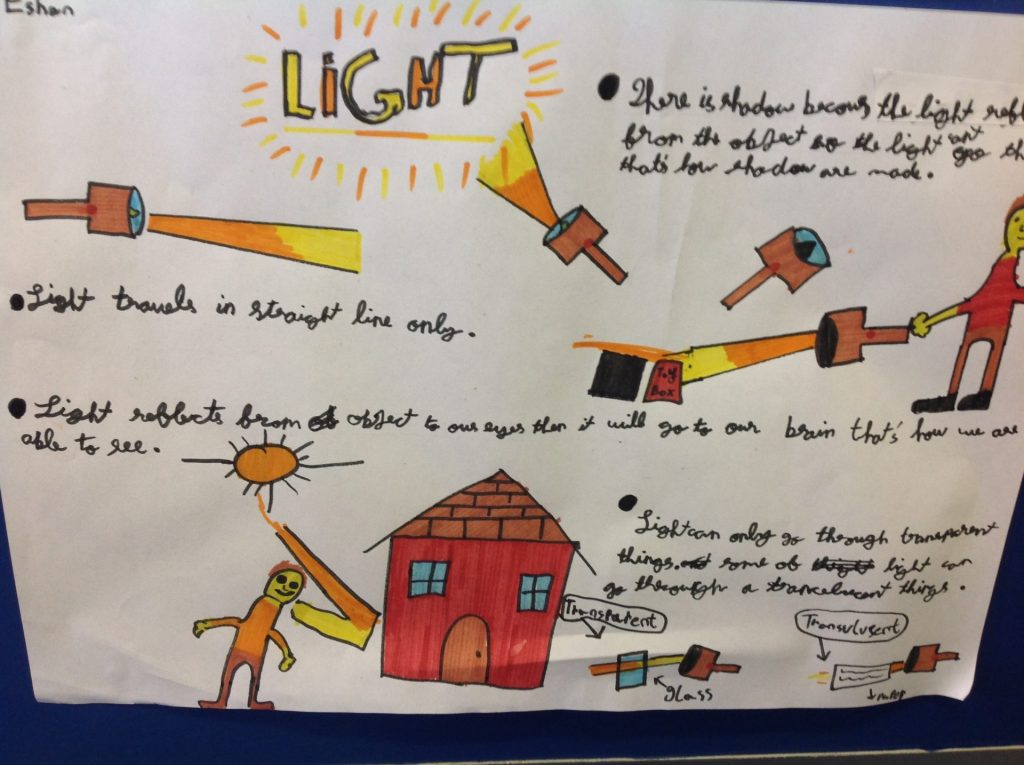 Eshan
LIGHT
There is shadow becous the light refl
from the object so the light cant goo th
that's how shadow are made.
Light travels in straight line only.
Toy
Box
Light reflects from object to our eyes then it will go to our brain that's how we are
able to see.
Light can only go through tranparent
things. some of light can
go through a trancelucent things.
Transparent
glass
Transulusent